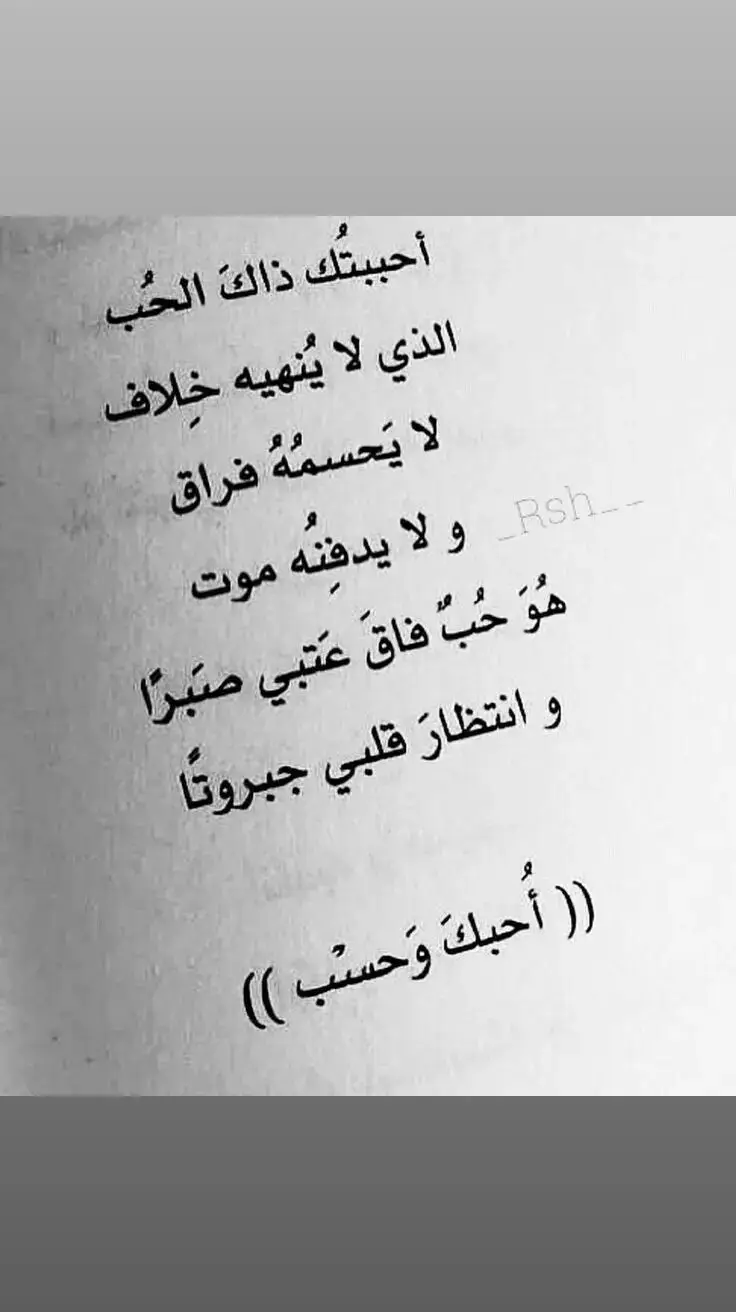 أحببتُك ذاكَ الحُب
الذي لا يُنهيه خِلاف
لا يَحسمُهُ فراق
و لا يدفِنُه موت
_Rsh_ _
هُوَ حُبٌ فاقَ عَتبي صبَرًا
و انتظارَ قلبي جبروتًا
(( أُحبكَ وَحسْب ))